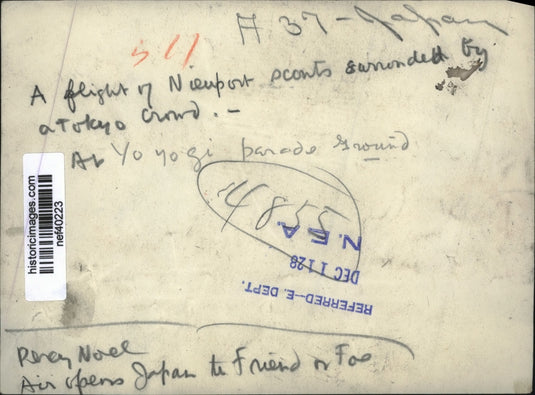 A 37 - Japan
511
A flight of Nieuport scouts surronded by
a Tokyo crowd. -
At Yoyogi parade Ground
historicimages.com
nef40223
4855
N.E.A.
DEC 11 28
REFERRED--E. DEPT.
Percy Noel
Air opens Japan to Friend or Foe